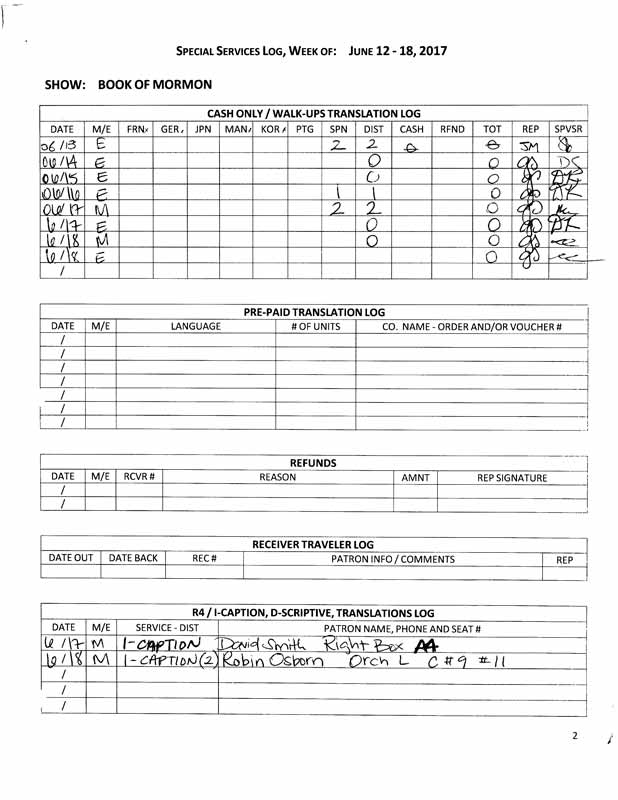 SPECIAL SERVICES LOG, WEEK OF: JUNE 12 - 18, 2017
SHOW: BOOK OF MORMON
CASH ONLY / WALK-UPS TRANSLATION LOG
DATE M/E FRN GER JPN MAN KOR PTG SPN DIST CASH RFND TOT REP SPVSR
06/13 E 2 2 0 0 JM
06/14 E 0 0 DS
06/15 E 0 0
06/16 E 1 1 0
06/17 M 2 2 0
6/17 E 0 0
6/18 M 0 0
6/18 E 0
/
PRE-PAID TRANSLATION LOG
DATE M/E LANGUAGE # OF UNITS CO. NAME - ORDER AND/OR VOUCHER #
/
/
/
/
/
/
/
REFUNDS
DATE M/E RCVR # REASON AMNT REP SIGNATURE
/
/
RECEIVER TRAVELER LOG
DATE OUT DATE BACK REC # PATRON INFO / COMMENTS REP
R4 / I-CAPTION, D-SCRIPTIVE, TRANSLATIONS LOG
DATE M/E SERVICE - DIST PATRON NAME, PHONE AND SEAT #
6/17 M I-CAPTION David Smith Right Box
6/18 M I-CAPTION(2) Robin Osborn Orch L C#9 #11
/
/
2